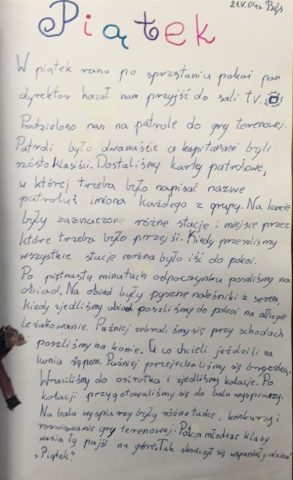 21.V.04r.
Piątek
W piątek rano po sprzątaniu pokoi pan
dyrektor kazał nam przyjść do sali tv.
Podzielono nas na patrole do gry terenowej.
Patroli było dwanaście a kapitanami byli
szósto klasiści. Dostaliśmy kartę patrolowe,
w której trzeba było napisać nazwe
patrolu i imiona każdego z grupy. Na karcie
były zaznaczone różne stacje i miejsce przez
które trzeba było przejść. Kiedy przeszliśmy
wszystkie stacje można było iść do pokoi.
Po piętnastu minutach odpoczynku poszliśmy na
obiad. Na obiad były pyszne naleśniki z serem.
Kiedy zjedliśmy obiad poszliśmy do pokoi na długie
Leżakowanie. Później zebraliśmy się przy schodach
i poszliśmy na konie. Ci co chcieli jeździli na
koniu stępem. Później przejechaliśmy się bryczką.
Wruciliśmy do ośrodka i zjedliśmy kolacje. Po
kolacji przygotowaliśmy się do balu wyspiarzy.
Na balu wyspiarzy były różne tańce, konkursy i
rozwiązanie gry terenowej. Potem młodsze klasy
musiały pujść na góre. Tak skończył się wspaniały dzień
"Piątek."